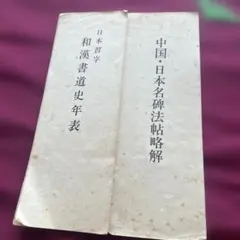 中国・日本名碑法帖略解
日本習字
和漢書道史年表